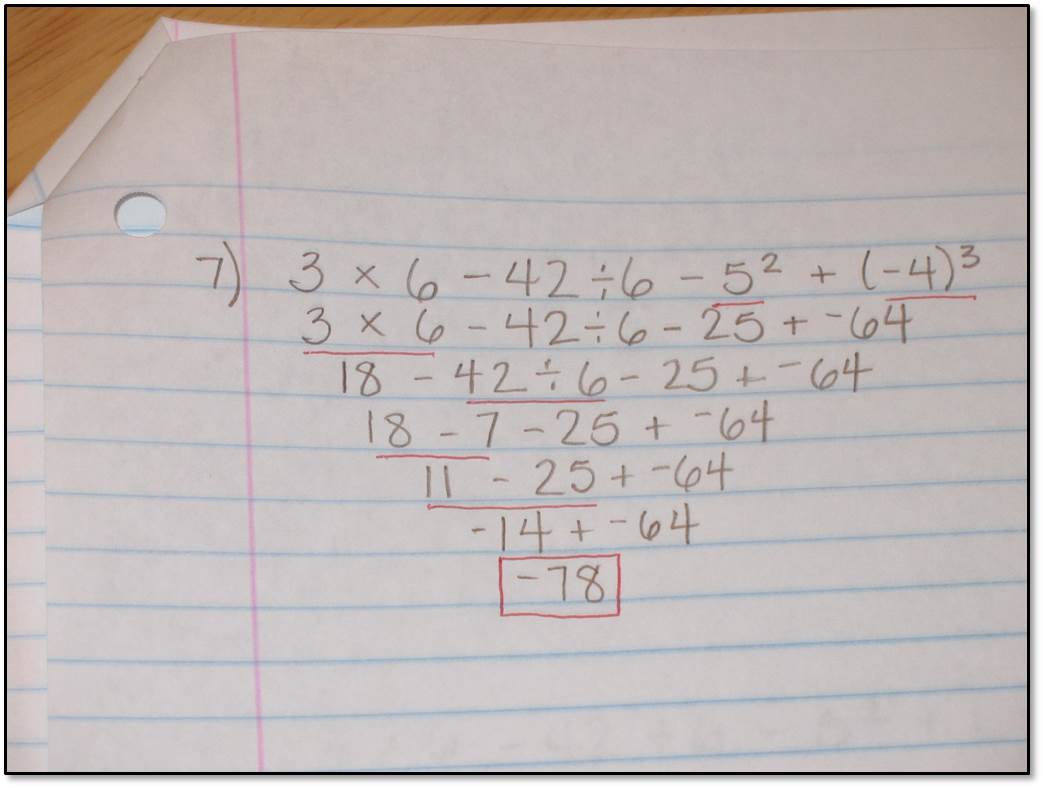 7) 3 × 6 − 42 ÷ 6 − 5² + (−4)³
3 × 6 − 42 ÷ 6 − 25 + ⁻64
18 − 42 ÷ 6 − 25 + ⁻64
18 − 7 − 25 + ⁻64
11 − 25 + ⁻64
-14 + ⁻64
−78